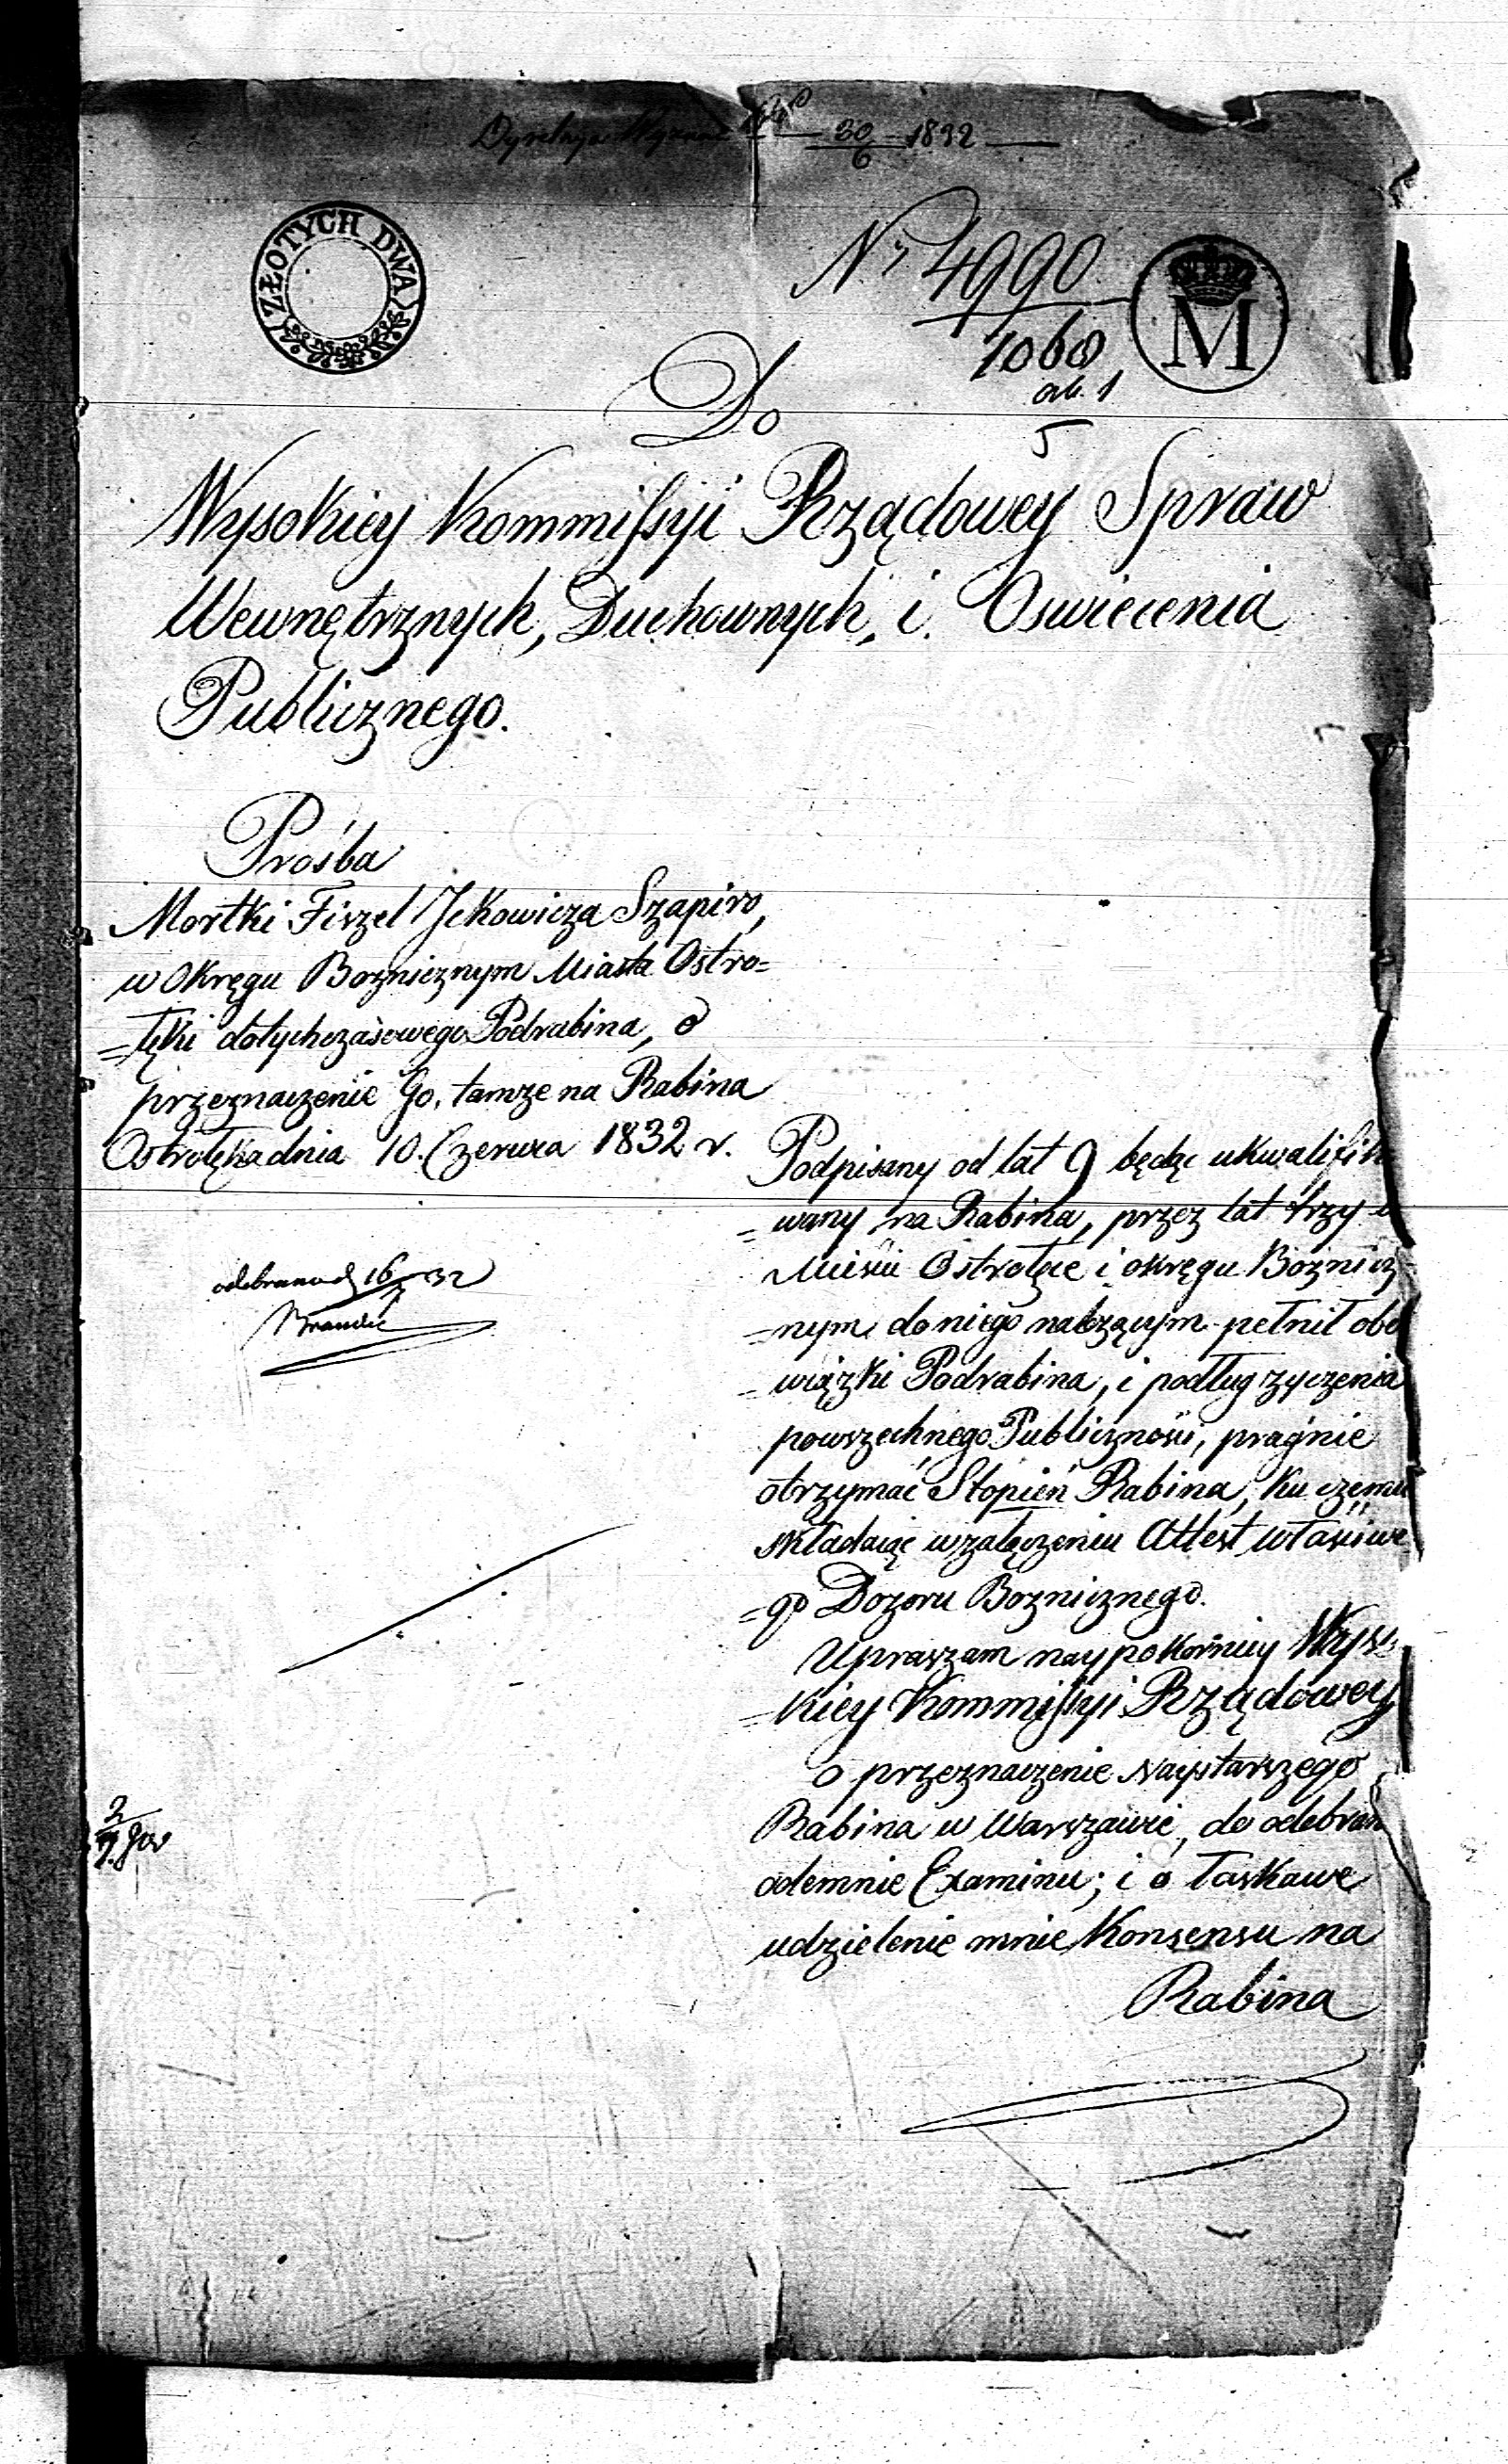 Dyrekcya 30/6 1832
ZŁOTYCH DWA
Nr 4990
1060
ark. 1
5
M
Do
Wysokiey Kommissyi Rządowey Spraw
Wewnętrznych, Duchownych, i Oswiecenia
Publicznego.
Prośba
Mortki Fiszel Jckowicza Szapiro,
w Okręgu Boznicznym Miasta Ostro=
=łęki dotychczasowego Podrabina, o
przeznaczenie Go, tamze na Rabina
Ostrołęka dnia 10. Czerwca 1832 r.
odebrano d 16/7 32
Podpisany od lat 9 będąc ukwalifik
=wany na Rabina, przez lat trzy w
Mieście Ostrołęce i okręgu Bożnicz=
=nym do niego należącym pełnił obo
=wiązki Podrabina, i podług zyczenia
powszechnego Publiczności, pragnie
otrzymać Stopień Rabina, ku czemu
składaiąc w załączeniu Attest właściwe
=go Dozoru Boznicznego.
Upraszam naypokorniey Wyso
=kiey Kommissyi Rządowey
o przeznaczenie Naystarszego
Rabina w Warszawie, do odebran
odemnie Examinu; i o łaskawe
udzielenie mnie Konsensu na
Rabina